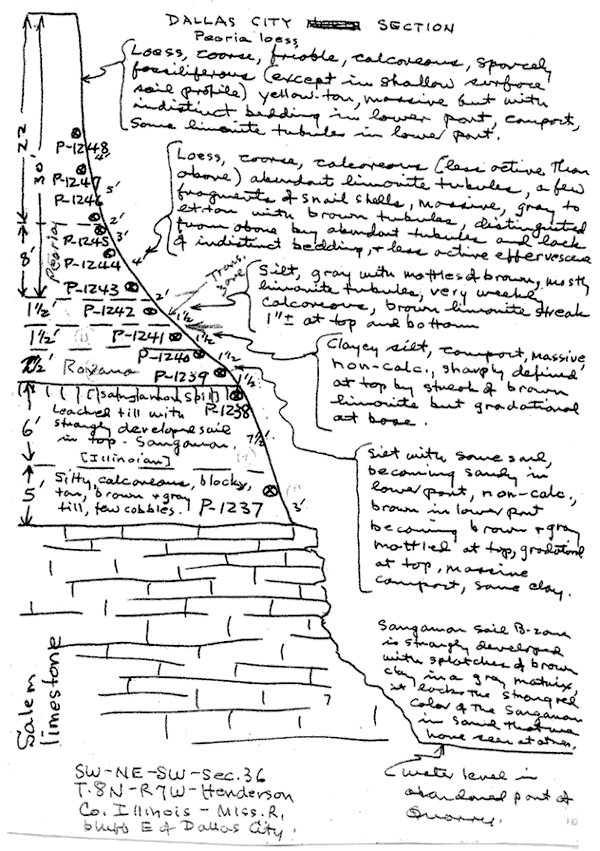 DALLAS CITY SECTION
Peoria loess
Loess, coarse, friable, calcareous, sparcely
fossiliferous (except in shallow surface
soil profile) yellow-tan, massive but with
indistinct bedding in lower part, compact,
some limonite tubules in lower part.
22
30'
P-1248
4'
P-1247
P-1246
5'
2'
Loess, coarse, calcareous (less active than
above) abundant limonite tubules, a few
fragments of snail shells, massive, gray to
lt. tan with brown tubules, distinguished
from above by abundant tubules and lack
of indistinct bedding, + less active effervescence
8'
Peoria
P-1245
3'
P-1244
4'
P-1243
2'
Trans.
zone
Silt, gray with mottles of brown, mostly
limonite tubules, very weakly
calcareous, brown limonite streak
1"± at top and bottom
1½'
P-1242
1½
1½'
P-1241
1½
Clayey silt, compact, massive,
non-calc., sharply defined
at top by streak of brown
limonite but gradational
at base.
P-1240
1½
Roxana
P-1239
1½
[Sangamon Soil]
P-1238
6'
Leached till with
strongly developed soil
in top - Sangamon.
7½'
[Illinoian]
Silt with some sand,
becoming sandy in
lower part, non-calc.,
brown in lower part
becoming brown + gray
mottled at top, gradational
at top, massive
compact, some clay.
5'
Silty, calcareous, blocky,
tan, brown + gray
till, few cobbles.
P-1237
3'
Sangamon soil B-zone
is strongly developed
with splotches of brown
clay in a gray matrix,
it lacks the strong red
color of the Sangamon
in sand that we
have seen at others.
Salem
limestone
?
(water level in
abandoned part of
Quarry.
SW-NE-SW-Sec. 36
T.8N-R7W-Henderson
Co. Illinois - Miss. R.
bluffs E of Dallas City.